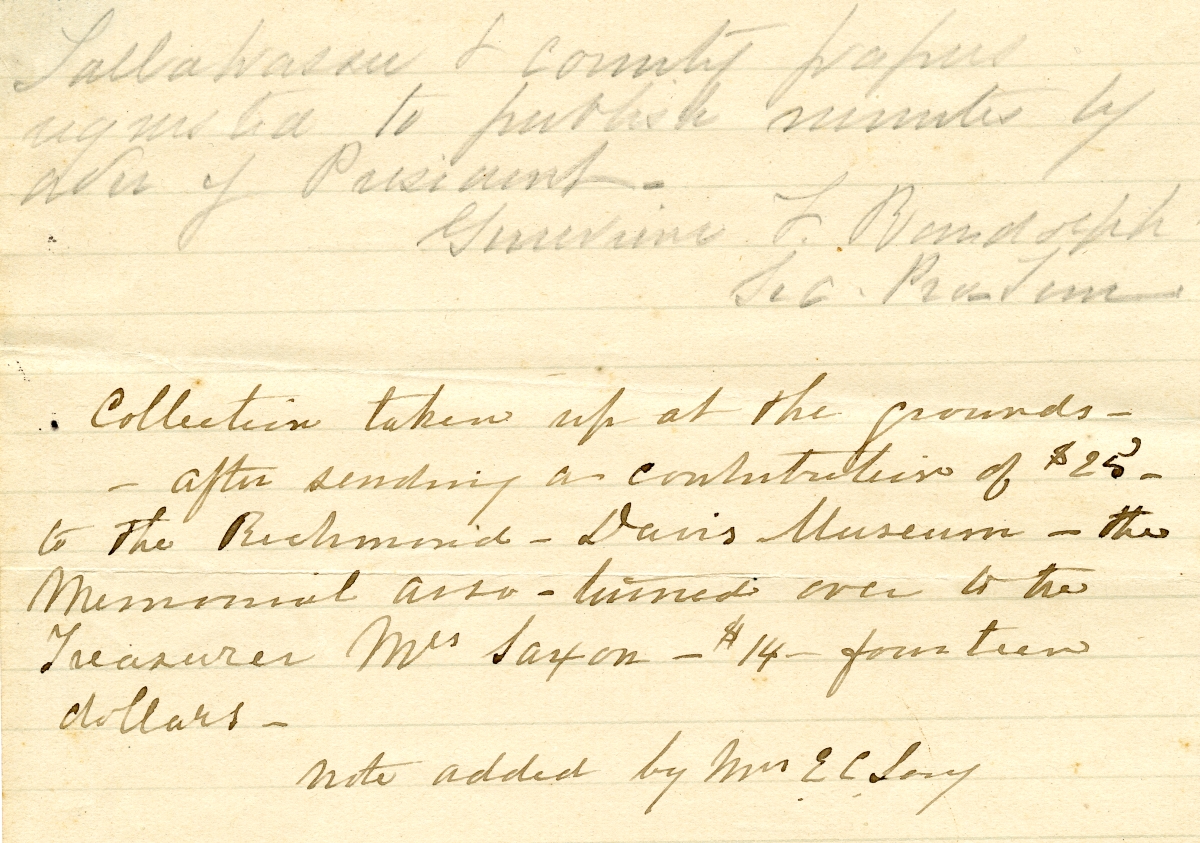 Tallahassee & county papers
requested to publish minutes by
order of President -
Genevieve F. Randolph
Sec. Pro-Tem
Collection taken up at the grounds -
- after sending a contribution of $25 -
to the Richmond - Davis Museum - the
Memorial asso - turned over to the
Treasurer Mrs Saxon - $14 - fourteen
dollars -
note added by Mrs E C Long